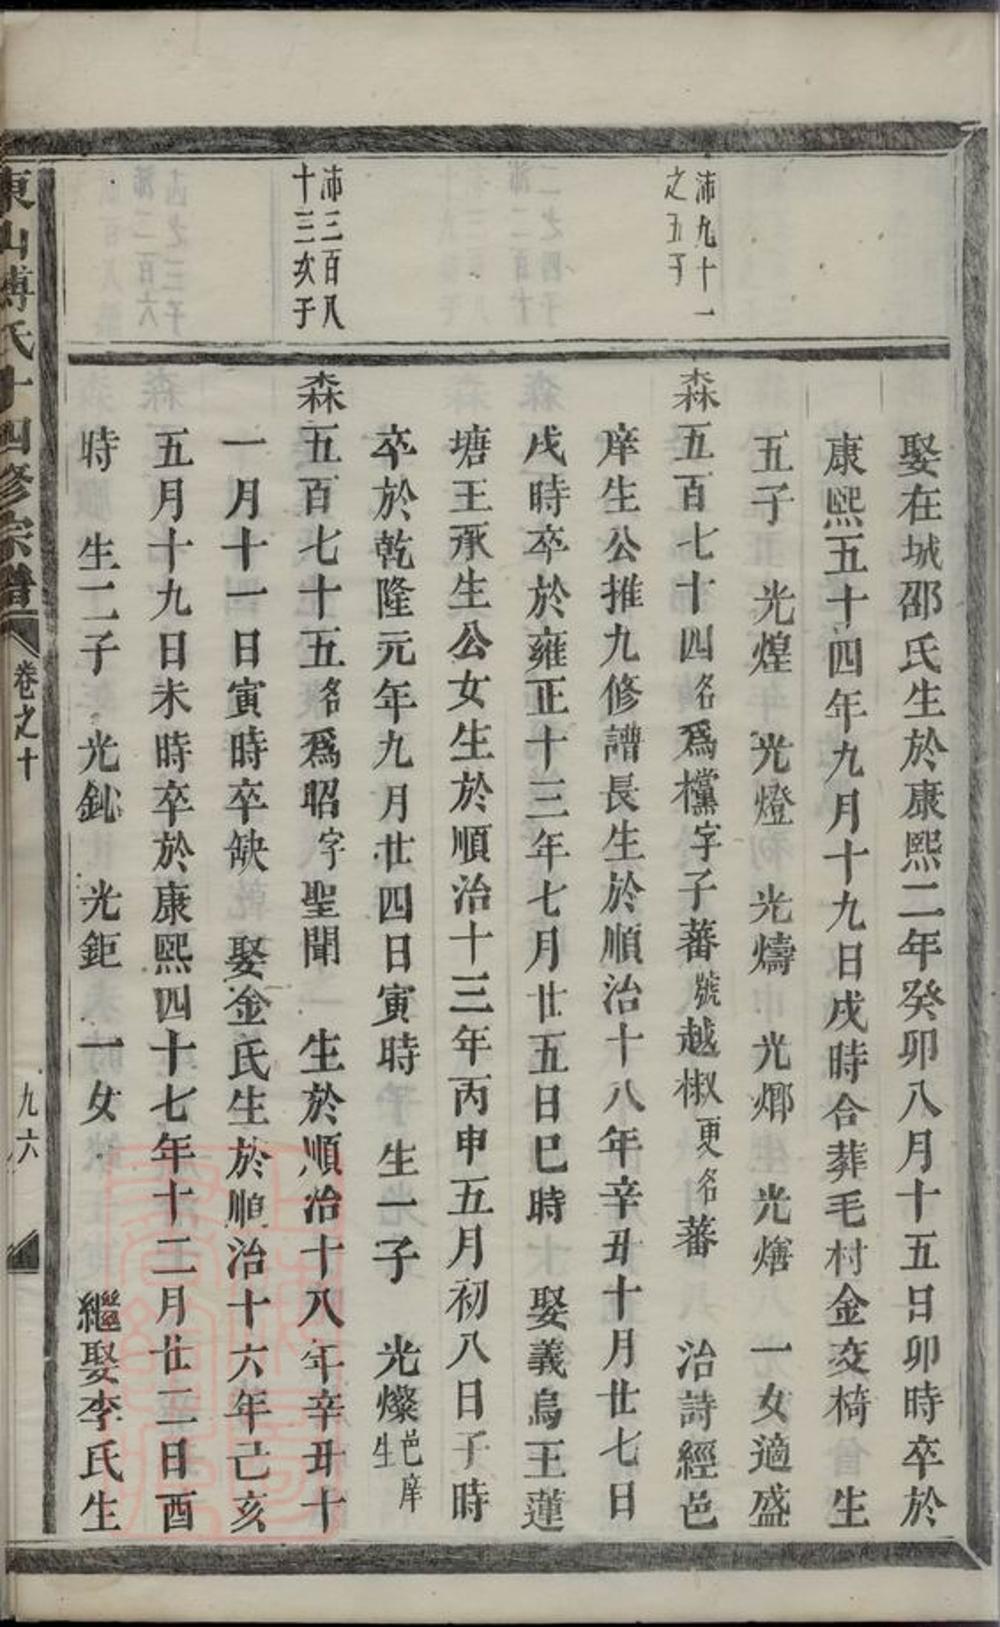 娶在城邵氏生於康熙二年癸卯八月十五日卯時卒於
康熙五十四年九月十九日戌時合葬毛村金交椅　生
五子　光煌　光燈　光燾　光𤌀　光㷛　一女適盛
沛九十一
之五子
森五百七十四名爲欓字子蕃號越椒更名蕃　治詩經邑
庠生公推九修譜長生於順治十八年辛丑十月廿七日
戌時卒於雍正十三年七月廿五日巳時　娶義烏王蓮
塘王承生公女生於順治十三年丙申五月初八日子時
卒於乾隆元年九月廿四日寅時　生一子　光燦邑庠生
沛三百八
十三次子
森五百七十五名爲昭字聖聞　生於順治十八年辛丑十
一月十一日寅時卒缺　娶金氏生於順治十六年己亥
五月十九日未時卒於康熙四十七年十二月廿二日酉
時　生二子　光釓　光鉅　一女　　繼娶李氏生
東山傅氏十四修宗譜　卷之十　九六